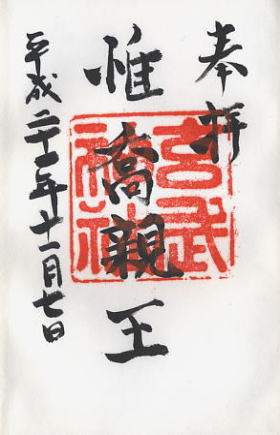 奉拝
惟喬親王
玄武神社
平成二十一年十一月七日